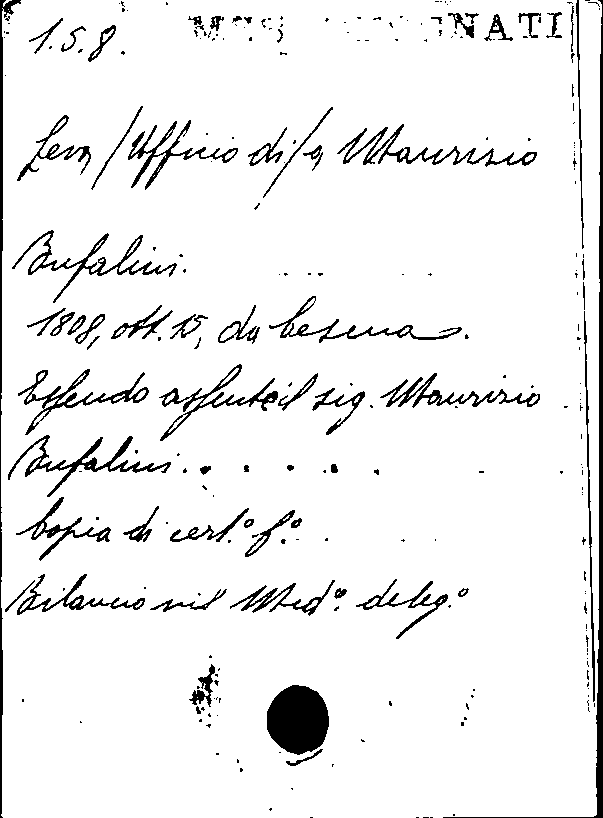 1.5.8.
Leva / Ufficio di / a Maurizio
Bufalini.
1808, ott. 15, da Cesena.
Essendo assente il sig. Maurizio
Bufalini. . . . . .
Copia di cert.° f.°
Bilancio nil Med°. deleg.°